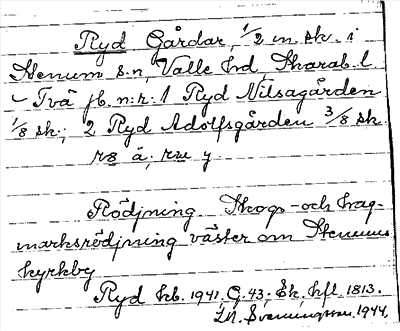 Ryd Gårdar, 1/2 m. sk. i
Stenum s:n, Valle hd, Skarab. l.
- Två jb. n:r: 1 Ryd Nilsagården
1/8 sk.; 2 Ryd Adolfsgården 3/8 sk.
Rödjning Skogs- och hag-
marksrödjning väster om Stenums
kyrkby
Ryd kb. 1941. G. 43; Ek. kfl. 1813.
Svenningsson 1944.